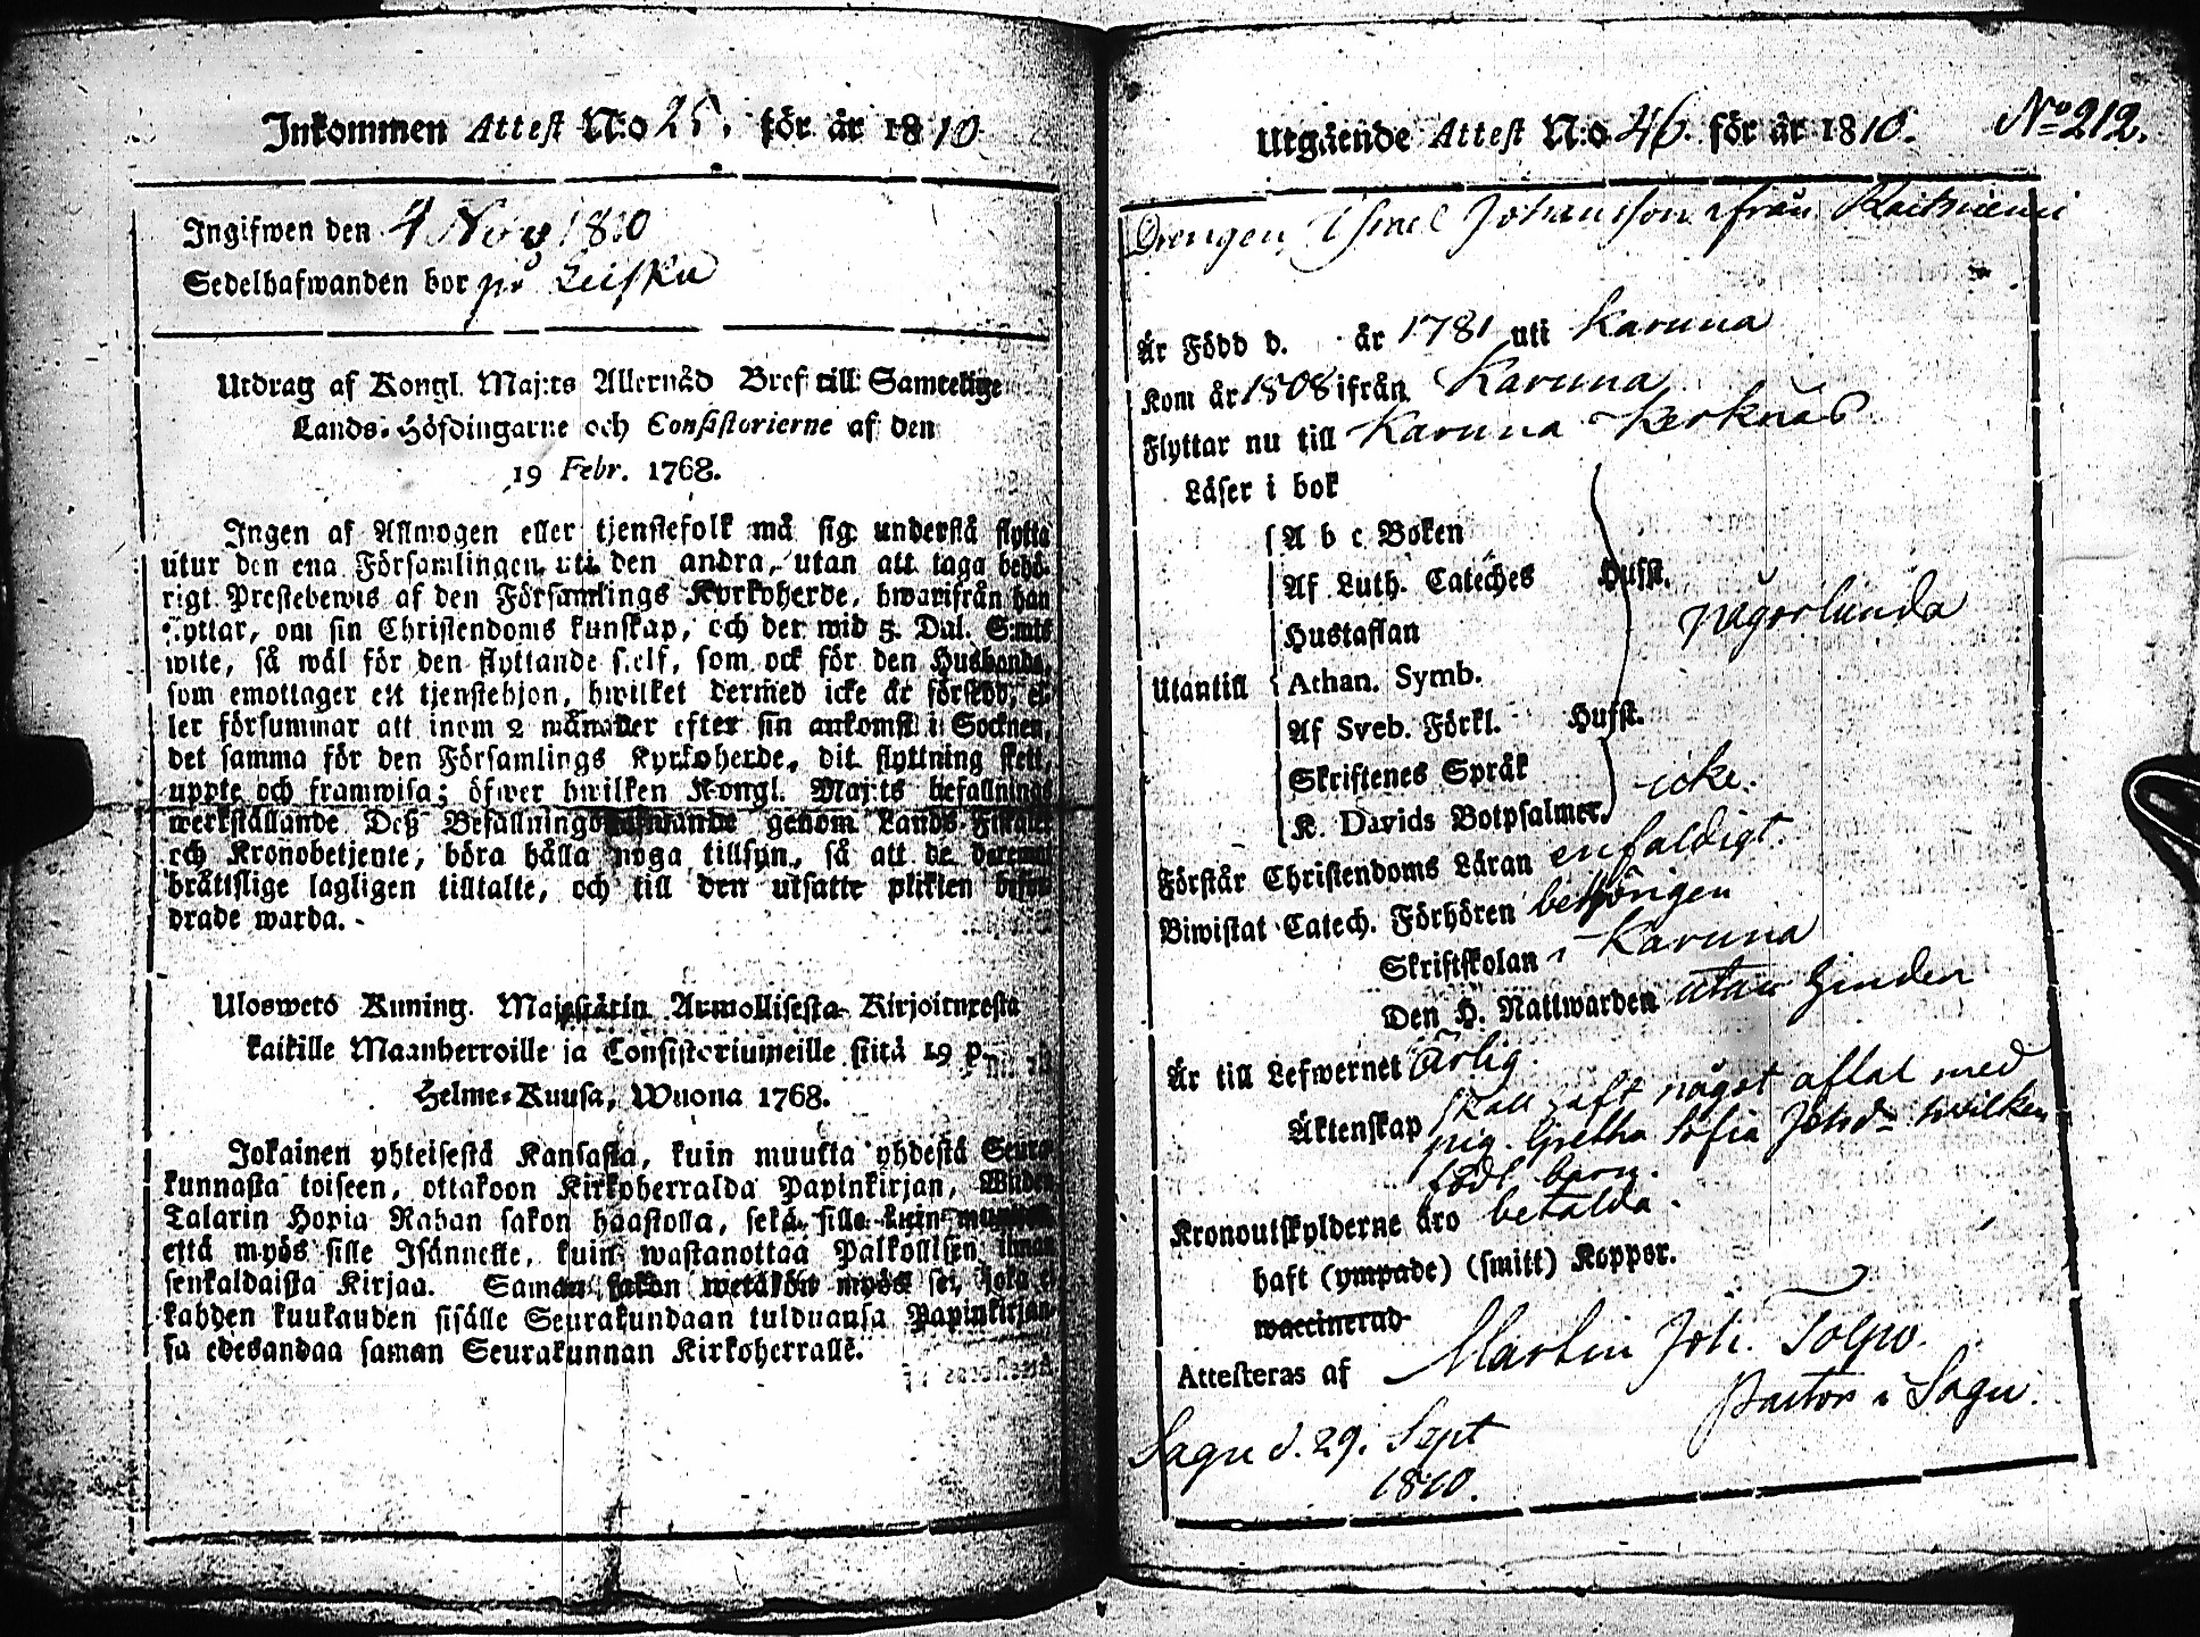 Inkommen Attest N:o 25. för år 1810
Ingifwen den 4 Nov 1810
Sedelhafwanden bor på Leiska
Utdrag af Kongl. Maj:ts Allernåd Bref till Samtelige
Lands-Höfdingarne och Consistorierne af den
19 Febr. 1768.
Ingen af Allmogen eller tjenstefolk må sig understå flytta
utur den ena Församlingen uti den andra, utan att taga behö-
rigt Prestebewis af den Församlings Kyrkoherde, hwarifrån han
flyttar, om sin Christendoms kunskap, och der wid 5. Dal. S:mts
wite, så wäl för den flyttande sjelf, som ock för den Husbonde,
som emottager ett tjenstehjon, hwilket dermed icke är försedd, el-
ler försummar att inom 2 månader efter sin ankomst i Socknen,
det samma för den Församlings Kyrkoherde, dit flyttning skett,
uppte och framwisa; öfwer hwilken Kongl. Maj:ts befallnings
werkställande Deß Befallningshafwande genom Lands-Fiskaler
och Kronobetjente, böra hålla noga tillsyn, så att de deremot
bråttslige lagligen tilltalte, och till den utsatte plikten befor-
drade warda.
Uloswetö Kuning. Majestätin Armollisesta Kirjoituxesta
kaikille Maanherroille ja Consistoriumeille siitä 19 p.
Helme-Kuusa, Wuona 1768.
Jokainen yhteisestä Kansasta, kuin muutta yhdestä Seura-
kunnasta toiseen, ottakoon Kirkoherralda Papinkirjan, Wiiden
Talarin Hopia Rahan sakon haastolla, sekä sille kuin muuttaa
että myös sille Isännelle, kuin wastanottaa Palkollisen ilman
senkaldaista Kirjaa. Saman sakon wetäkön myös se, joka ei
kahden kuukauden sisälle Seurakundaan tulduansa Papinkirjan-
sa edesandaa saman Seurakunnan Kirkoherralle.
Utgående Attest N:o 46. för år 1810. No 212.
Drengen Ismel Johansson ifrån
Är Född d. år 1781 uti Karuna
Kom år 1808 ifrån Karuna
Flyttar nu till Karuna Kerknäs
Läser i bok
A b c Boken
Af Luth. Cateches Hufst.
Hustaflan någorlunda
Utantill Athan. Symb.
Af Sveb. Förkl. Hufst.
Skriftenes Språk
K. Davids Botpsalmer. icke.
Förstår Christendoms Läran enfaldigt.
Biwistat Catech. Förhören behörigen
Skriftskolan i Karuna
Den H. Nattwarden utan hinder
Är till Lefwernet Ärlig.
Äktenskap skall haft något aflat med
pig. Gretha Sofia Johsdr hwilken
födt barn.
Kronoutskylderne äro betalda.
haft (ympade) (smitt) Koppor.
waccinerad
Attesteras af Martin Joh. Tolpo.
Pastor i Sagu.
Sagu d. 29. Sept
1810.